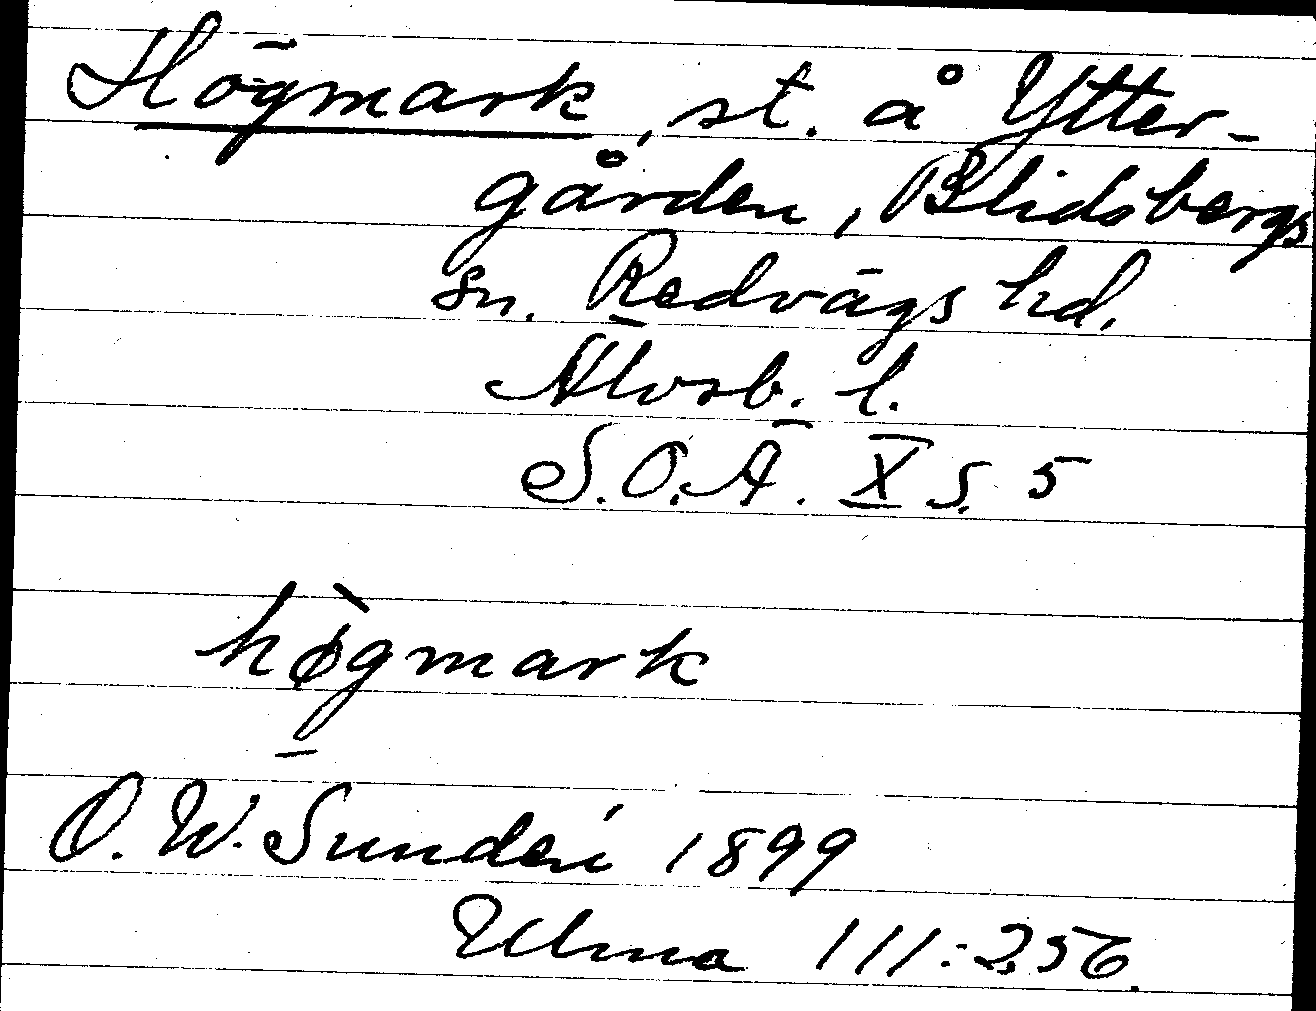 Högmark, st. å Ytter-
gården, Blidsbergs
sn. Redvägs hd.
Älvsb. l.
S.O.Ä. X s. 5
hø̀gmark
O. W. Sundén 1899
Ulma 111:256.